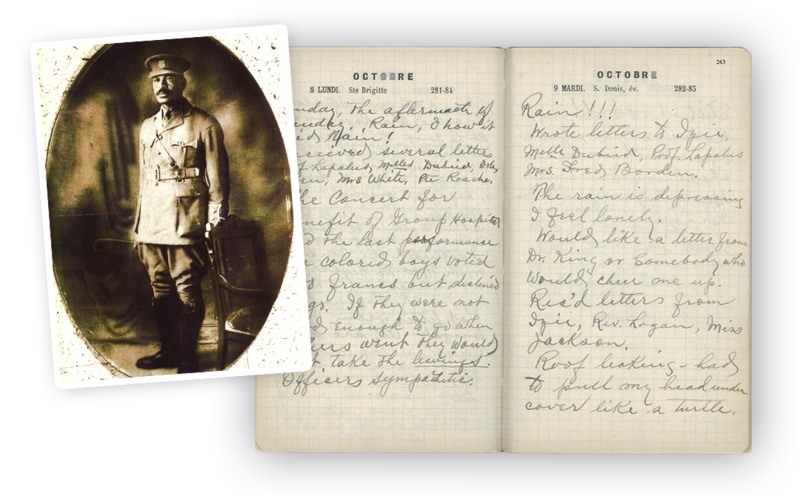 OCTOBRE
8 LUNDI. Ste Brigitte 281-84
nday, the aftermath of
unday. Rain, O how it
id Rain!
ceived several letters
f. Lapalus, Melles Dubied,
Mrs White, Pvt Roache.
he Concert for
nefit of Group Hospital
d the last performance
e colored boys voted
o francs but declined
gs. If they were not
d enough to go when
ers went they would
t take the leavings.
Officers sympathetic.
263
OCTOBRE
9 MARDI. S. Denis, év. 282-83
Rain!!!
Wrote letters to Izie,
Melle Dubied, Prof. Lapalus
Mrs. Fred Borden.
The rain is depressing
I feel lonely.
Would like a letter from
Dr. King or Somebody who
Would cheer me up.
Rec'd letters from
Izie, Rev. Logan, Miss
Jackson.
Roof leaking - had
to pull my head under
cover like a turtle.